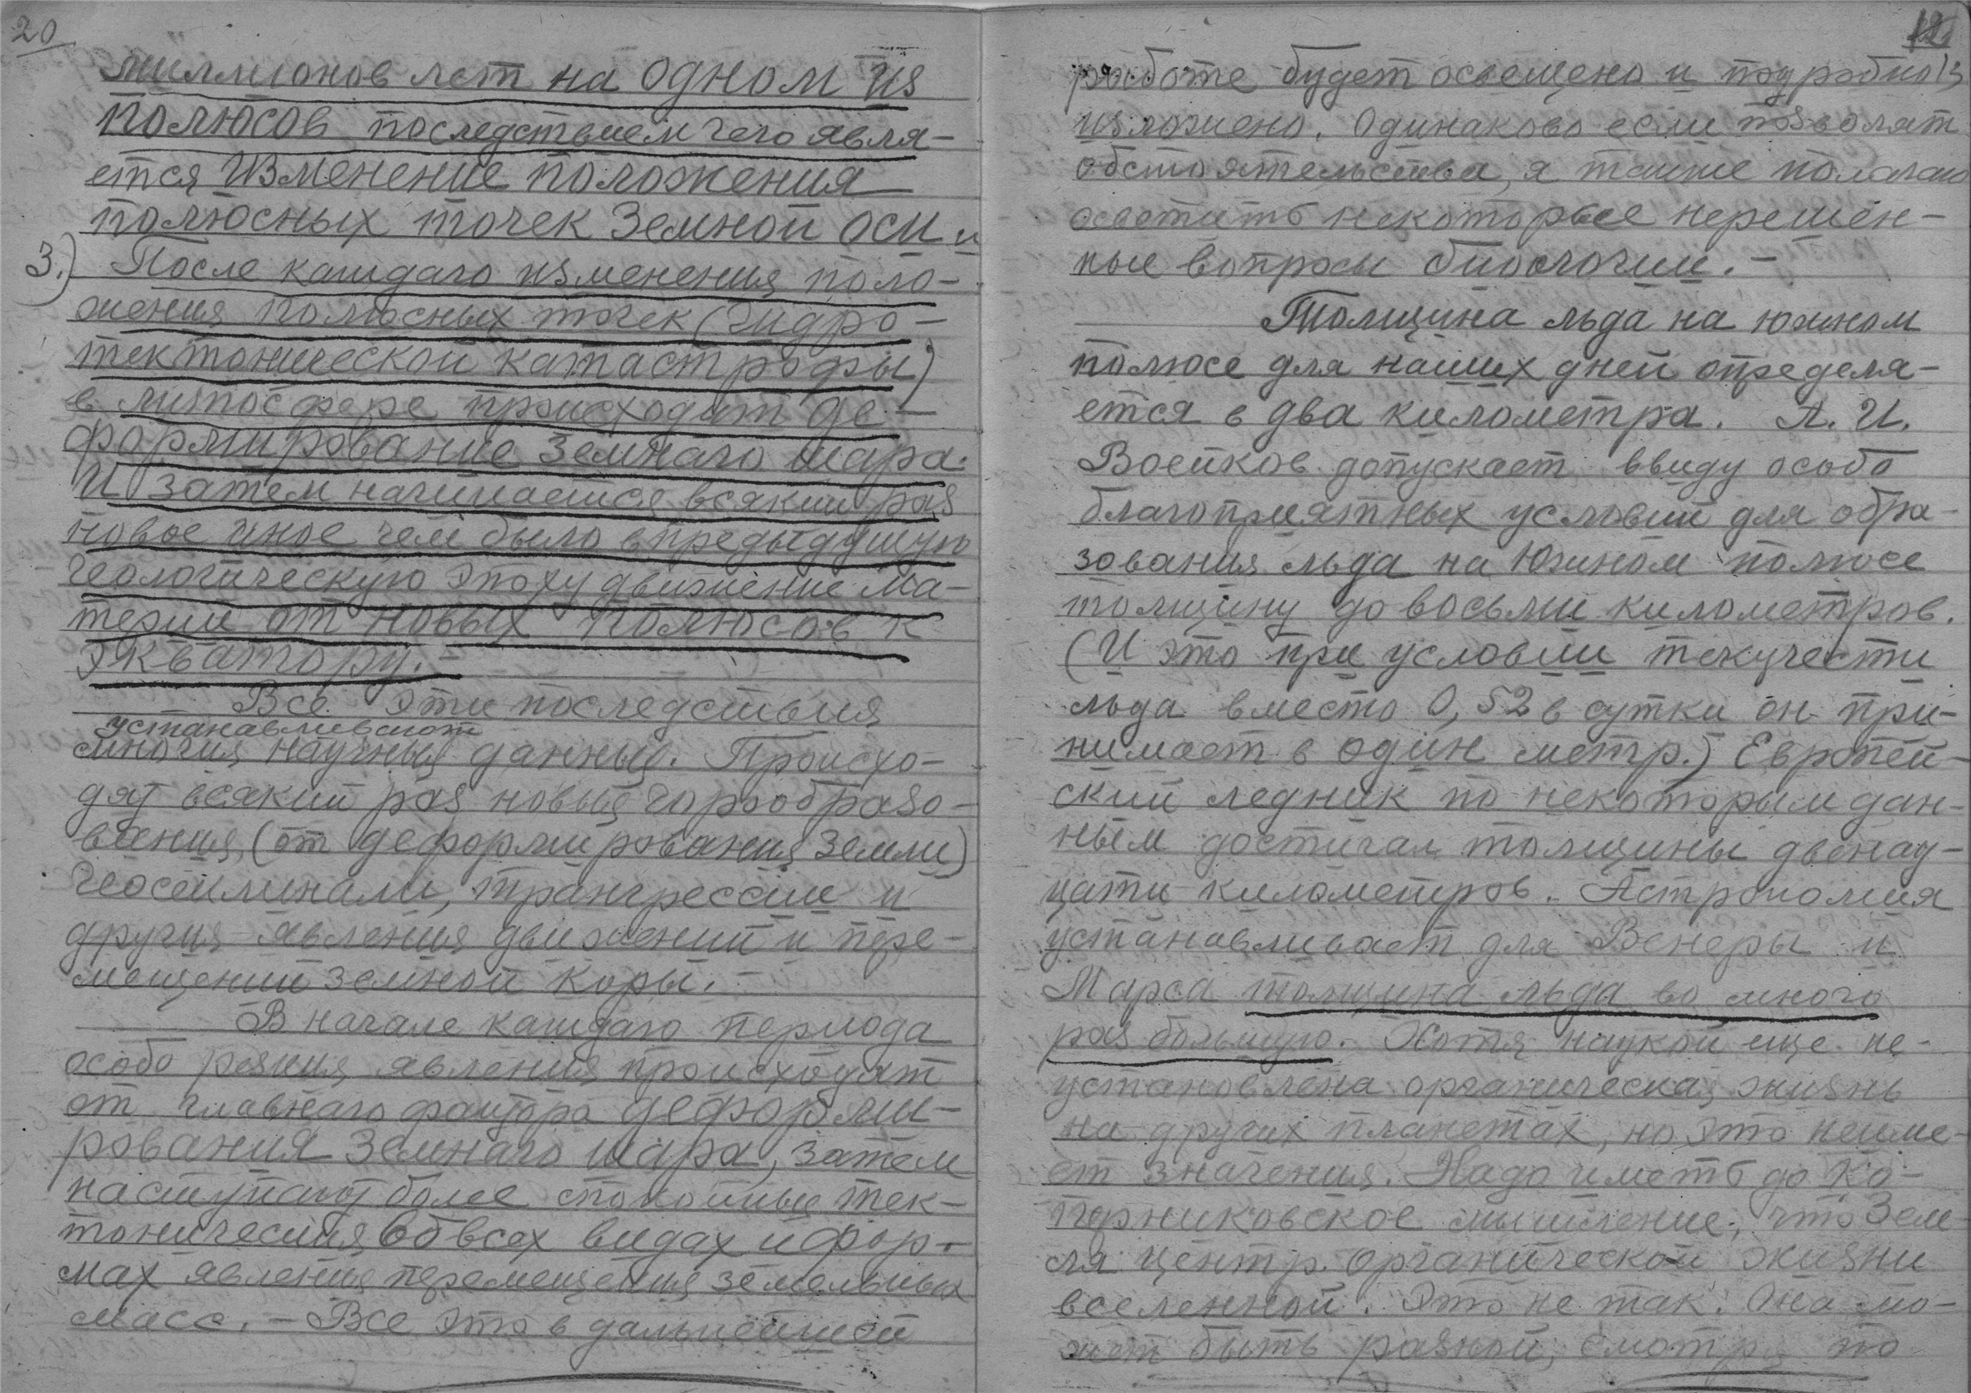 20
миллионов лет на одном из
полюсов последствием чего явля-
ется изменение положения
полюсных точек Земной оси и
3.) После каждаго изменения поло-
жения полюсных точек (гидро-
тектонической катастрофы)
в литосфере происходит де-
формирование Земнаго шара.
И затем начинается всякий раз
новое иное чем было в предыдущую
геологическую эпоху движение ма-
терии от новых полюсов к
экватору. -
Все эти последствия
устанавливают
многия научныя данныя. Происхо-
дят всякий раз новыя горообразо-
вания (от деформирования Земли)
геосеилинали, трангрессии и
другия явления движений и пере-
мещений земной коры. -
В начале каждаго периода
особо резкия явления происходят
от главнаго фактора деформи-
рования Земнаго шара, затем
наступают более спокойные тек-
тоническия во всех видах и фор-
мах явления перемещения земельных
масс. - Все это в дальнейшей
работе будет освещено и подробно
изложено. Одинаково если позволят
обстоятельства, я также полагаю
осветить некоторые нерешен-
ные вопросы биологии. -
Толщина льда на южном
полюсе для наших дней определя-
ется в два километра. А. И.
Воейков допускает ввиду особо
благоприятных условий для обра-
зования льда на Южном полюсе
толщину до восьми километров.
(И это при условии текучести
льда вместо 0,52 в сутки он при-
нимает в один метр.) Европей-
ский ледник по некоторым дан-
ным достигал толщины двенад-
цати километров. Астрономия
устанавливает для Венеры и
Марса толщина льда во много
раз большую. Хотя наукой еще не-
установлена органическая жизнь
на других планетах, но это неиме-
ет значения. Надо иметь до Ко-
перниковское мышление, что Зем-
ля центр органической жизни
вселенной. Это не так. Она мо-
жет быть разной, смотря по